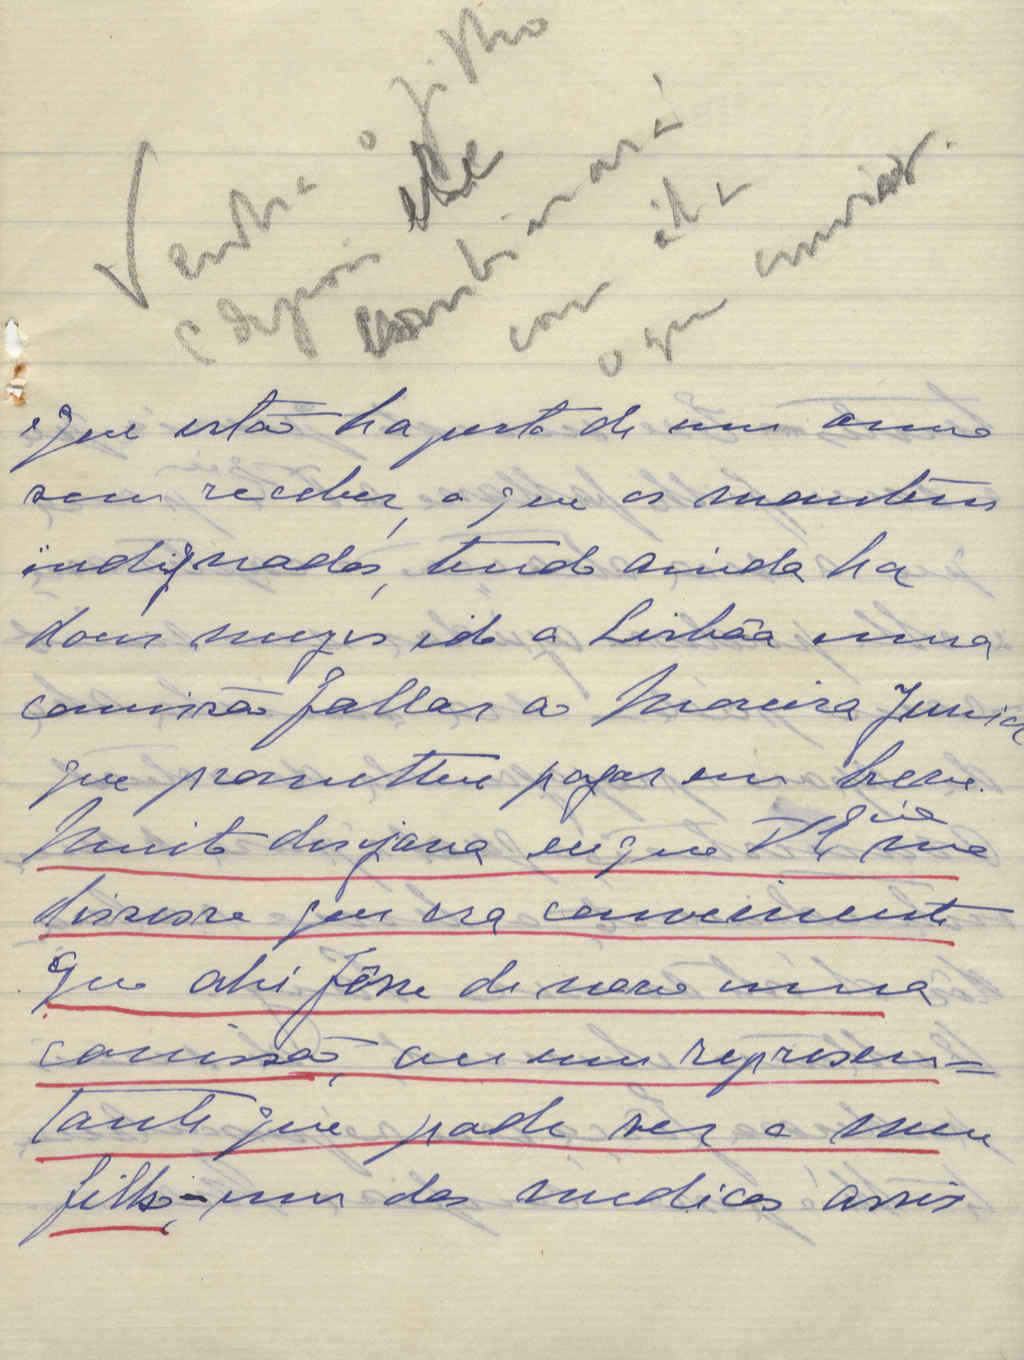 Venha o filho
e depois elle
continuará
com ella
o que
que estão ha perto de um anno
sem receber, o que os mantem
indignados, tendo ainda ha
dous mezes ido a Lisbôa uma
comissão fallar a Moreira Junior
que prometteu pagar em breve.
Muito desejava eu que V. Eª me
dissesse que era conveniente
que ahi fôsse de novo uma
comissão, ou um represen=
tante que pode ser o meu
filho,-um dos medicos assis